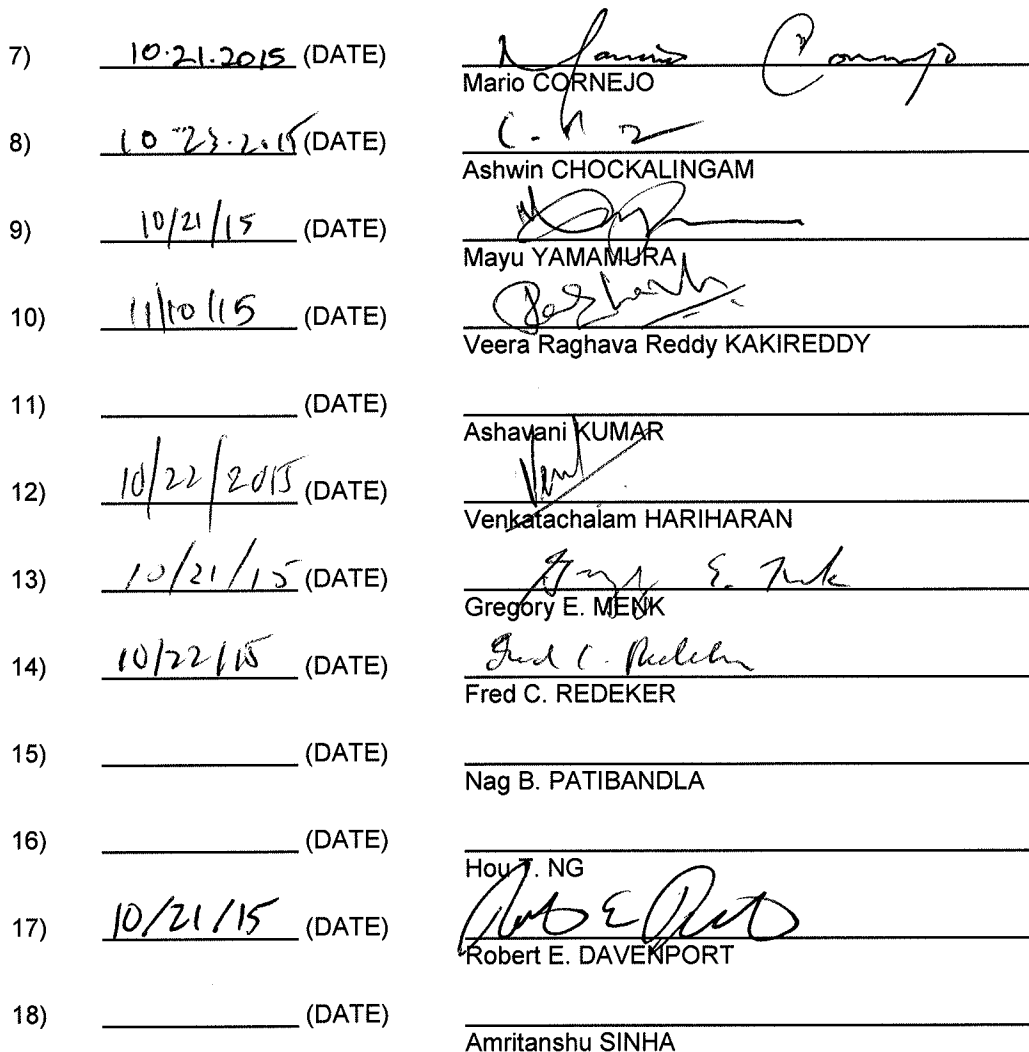 7) 10.21.2015 (DATE) Mario Cornejo
Mario CORNEJO
8) 10.23.2015 (DATE)
Ashwin CHOCKALINGAM
9) 10/21/15 (DATE)
Mayu YAMAMURA
10) 11/10/15 (DATE)
Veera Raghava Reddy KAKIREDDY
11) (DATE)
Ashavani KUMAR
12) 10/22/2015 (DATE)
Venkatachalam HARIHARAN
13) 10/21/15 (DATE)
Gregory E. MENK
14) 10/22/15 (DATE) Fred C. Redeker
Fred C. REDEKER
15) (DATE)
Nag B. PATIBANDLA
16) (DATE)
Hou T. NG
17) 10/21/15 (DATE)
Robert E. DAVENPORT
18) (DATE)
Amritanshu SINHA